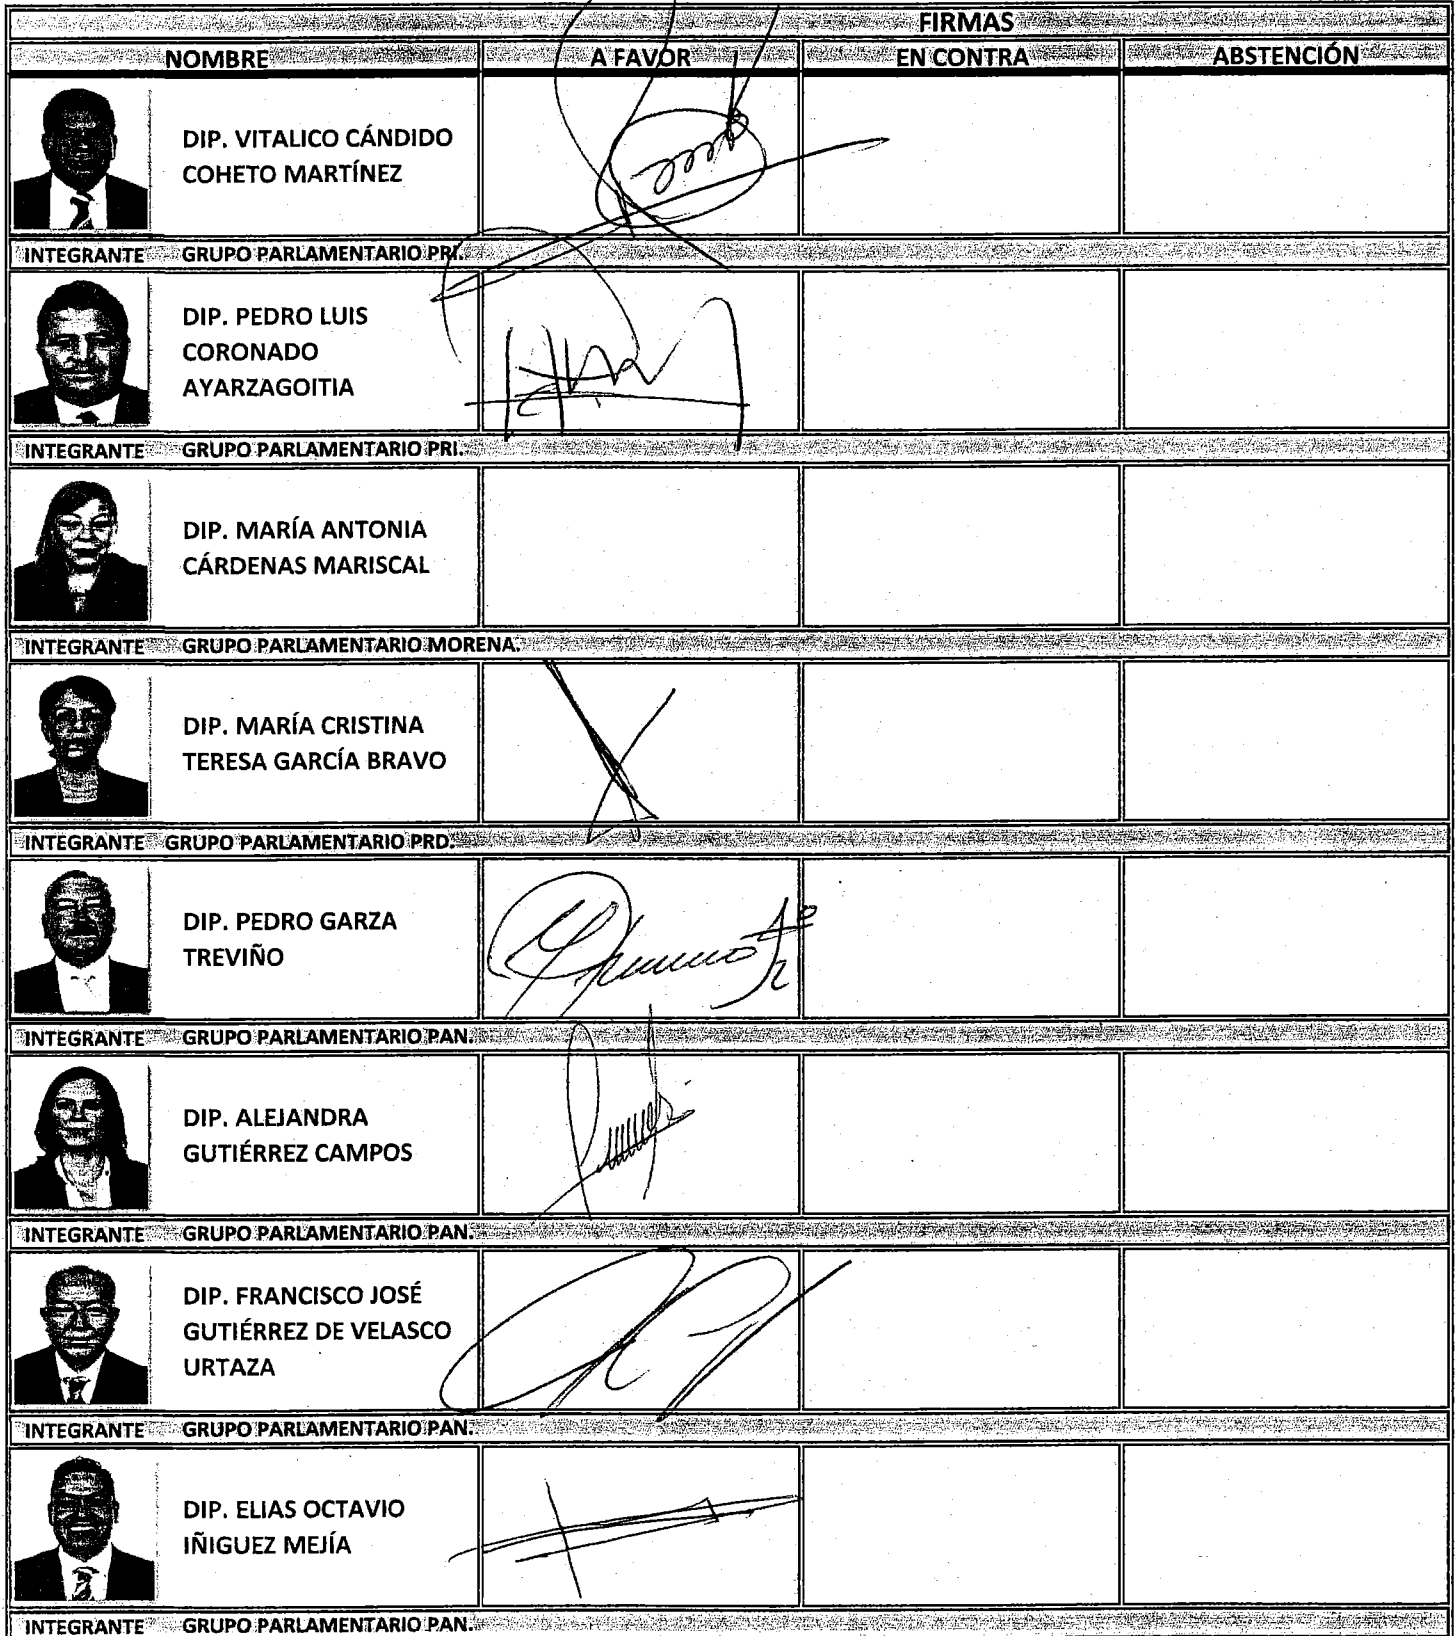 FIRMAS
NOMBRE A FAVOR EN CONTRA ABSTENCIÓN
DIP. VITALICO CÁNDIDO
COHETO MARTÍNEZ
INTEGRANTE GRUPO PARLAMENTARIO PRI.
DIP. PEDRO LUIS
CORONADO
AYARZAGOITIA
INTEGRANTE GRUPO PARLAMENTARIO PRI.
DIP. MARÍA ANTONIA
CÁRDENAS MARISCAL
INTEGRANTE GRUPO PARLAMENTARIO MORENA.
DIP. MARÍA CRISTINA
TERESA GARCÍA BRAVO
INTEGRANTE GRUPO PARLAMENTARIO PRD.
DIP. PEDRO GARZA
TREVIÑO
INTEGRANTE GRUPO PARLAMENTARIO PAN.
DIP. ALEJANDRA
GUTIÉRREZ CAMPOS
INTEGRANTE GRUPO PARLAMENTARIO PAN.
DIP. FRANCISCO JOSÉ
GUTIÉRREZ DE VELASCO
URTAZA
INTEGRANTE GRUPO PARLAMENTARIO PAN.
DIP. ELIAS OCTAVIO
IÑIGUEZ MEJÍA
INTEGRANTE GRUPO PARLAMENTARIO PAN.